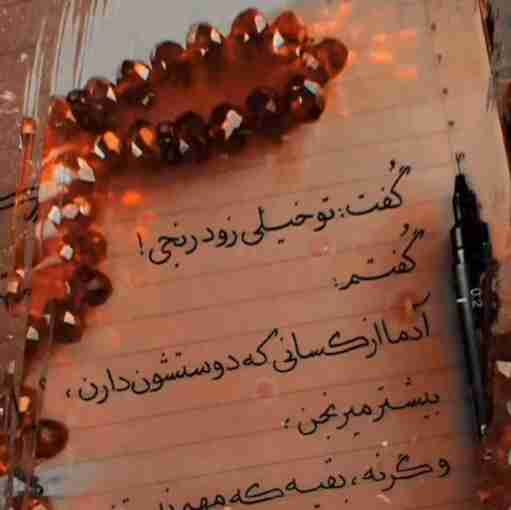 گُفت: تو خیلی زود رنجی!
گُفتم:
آدما از کسانی که دوستشون دارن،
بیشتر میرنجن،
وگرنه، بقیه که مهم
0.2